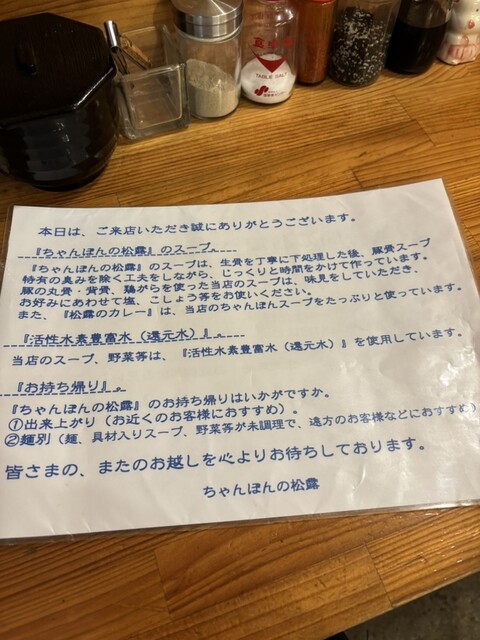 食卓塩
TABLE SALT
本日は、ご来店いただき誠にありがとうございます。
『ちゃんぽんの松露』のスープ。
『ちゃんぽんの松露』のスープは、生骨を丁寧に下処理した後、豚骨スープ
特有の臭みを除く工夫をしながら、じっくりと時間をかけて作っています。
豚の丸骨・背骨、鶏がらを使った当店のスープは、味見をしていただき、
お好みにあわせて塩、こしょう等をお使いください。
また、『松露のカレー』は、当店のちゃんぽんスープをたっぷりと使っています。
『活性水素豊富水(還元水)』。
当店のスープ、野菜等は、『活性水素豊富水(還元水)』を使用しています。
『お持ち帰り』。
『ちゃんぽんの松露』のお持ち帰りはいかがですか。
①出来上がり(お近くのお客様におすすめ)。
②麺別(麺、具材入りスープ、野菜等が未調理で、遠方のお客様などにおすすめ)
皆さまの、またのお越しを心よりお待ちしております。
ちゃんぽんの松露